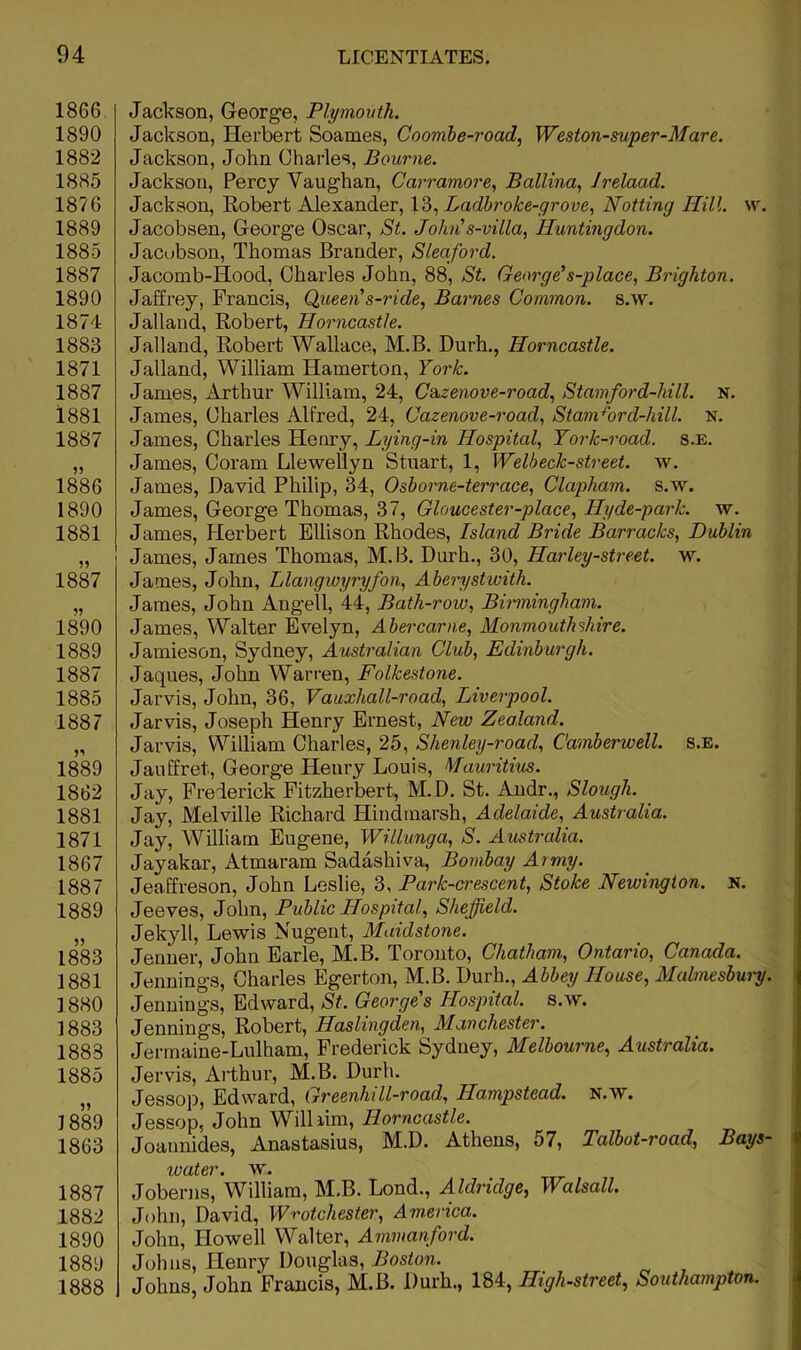 94 LICENTIATES.
1866 Jackson, George, Plymouth.
1890 Jackson, Herbert Soames, Coombe-road, Weston-super-Mare.
1882 Jackson, John Charles, Bourne.
1885 Jackson, Percy Vaughan, Carramore, Ballina, Irelaad.
1876 Jackson, Robert Alexander, 13, Ladbroke-grove, Notting Hill. w.
1889 Jacobsen, George Oscar, St. John's-villa, Huntingdon.
1885 Jacobson, Thomas Brander, Sleaford.
1887 Jacomb-Hood, Charles John, 88, St. George's-place, Brighton.
1890 Jaffrey, Francis, Queen's-ride, Barnes Common. s.w.
1874 Jalland, Robert, Horncastle.
1883 Jalland, Robert Wallace, M.B. Durh., Horncastle.
1871 Jalland, William Hamerton, York.
1887 James, Arthur William, 24, Cazenove-road, Stamford-hill. N.
1881 James, Charles Alfred, 24, Cazenove-road, Stamford-hill. N.
1887 James, Charles Henry, Lying-in Hospital, York-road. S.E.
" James, Coram Llewellyn Stuart, 1, Welbeck-street. w.
1886 James, David Philip, 34, Osborne-terrace, Clapham. s.w.
1890 James, George Thomas, 37, Gloucester-place, Hyde-park. w.
1881 James, Herbert Ellison Rhodes, Island Bride Barracks, Dublin
" James, James Thomas, M.B. Durh., 30, Harley-street. w.
1887 James, John, Llangwyryfon, Aberystwith.
" James, John Angell, 44, Bath-row, Birmingham.
1890 James, Walter Evelyn, Abercarne, Monmouthshire.
1889 Jamieson, Sydney, Australian Club, Edinburgh.
1887 Jaques, John Warren, Folkestone.
1885 Jarvis, John, 36, Vauxhall-road, Liverpool.
1887 Jarvis, Joseph Henry Ernest, New Zealand.
" Jarvis, William Charles, 25, Shenley-road, Camberwell. S.E.
1889 Jauffret, George Henry Louis, Mauritius.
1862 Jay, Frederick Fitzherbert, M.D. St. Andr., Slough.
1881 Jay, Melville Richard Hindmarsh, Adelaide, Australia.
1871 Jay, William Eugene, Willunga, S. Australia.
1867 Jayakar, Atmaram Sadáshiva, Bombay Army.
1887 Jeaffreson, John Leslie, 3, Park-crescent, Stoke Newington. N.
1889 Jeeves, John, Public Hospital, Sheffield.
" Jekyll, Lewis Nugent, Maidstone.
1883 Jenner, John Earle, M.B. Toronto, Chatham, Ontario, Canada.
1881 Jennings, Charles Egerton, M.B. Durh., Abbey House, Malmesbury.
1880 Jennings, Edward, St. George's Hospital. s.w.
1883 Jennings, Robert, Haslingden, Manchester.
1888 Jermaine-Lulham, Frederick Sydney, Melbourne, Australia.
1885 Jervis, Arthur, M.B. Durh.
" Jessop, Edward, Greenhill-road, Hampstead. N.W.
1889 Jessop, John William, Horncastle.
1863 Joannides, Anastasius, M.D. Athens, 57, Talbot-road, Bays-
water. w.
1887 Joberns, William, M.B. Lond., Aldridge, Walsall.
1882 John, David, Wrotchester, America.
1890 John, Howell Walter, Ammanford.
1889 Johns, Henry Douglas, Boston.
1888 Johns, John Francis, M.B. Durh., 184, High-street, Southampton.